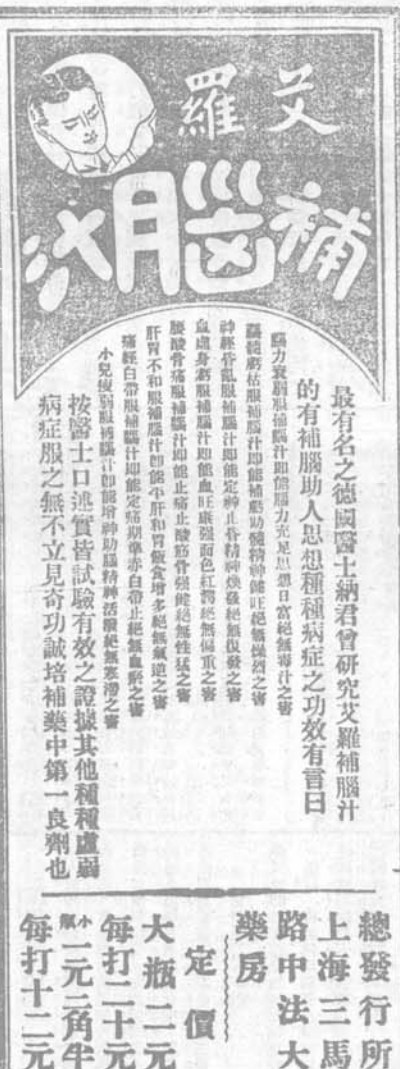 艾羅
補腦汁
最有名之德國醫士納君曾研究艾羅補腦汁
的有補腦助人思想種種病症之功效有言曰
腦力衰弱服補腦汁即能腦力充足思想日富絕無毒汁之害
腦髓虧枯服補腦汁即能補虧助髓精神健旺絕無燥烈之害
神經昏亂服補腦汁即能定神止昏精神煥發絕無復發之害
血虛身虧服補腦汁即能血旺康强面色紅潤絕無偏重之害
腰酸骨痛服補腦汁即能止痛止酸筋骨強健絕無性猛之害
肝胃不和服補腦汁即能平肝和胃飯食增多絕無氣逆之害
痛經白帶服補腦汁即能定痛期準赤白帶止絕無血瘀之害
小兒疲弱服補腦汁即能增神助腦精神活潑絕無寒滯之害
按醫士口述實皆試驗有效之證據其他種種虛弱
病症服之無不立見奇功誠培補藥中第一良劑也
總發行所
上海三馬
路中法大
藥房
定價
大瓶二元
每打二十元
小瓶一元二角半
每打十二元